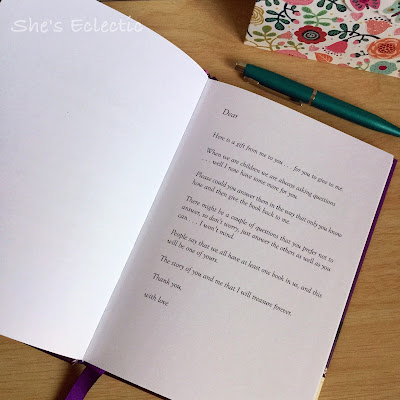 She's Eclectic
Dear
Here is a gift from me to you . . . for you to give to me.
When we are children we are always asking questions
. . . well I now have some more for you.
Please could you answer them in the way that only you know
how and then give the book back to me.
There might be a couple of questions that you prefer not to
answer, so don't worry, just answer the others as well as you
can . . . I won't mind.
People say that we all have at least one book in us, and this
will be one of yours.
The story of you and me that I will treasure forever.
Thank you,
with love